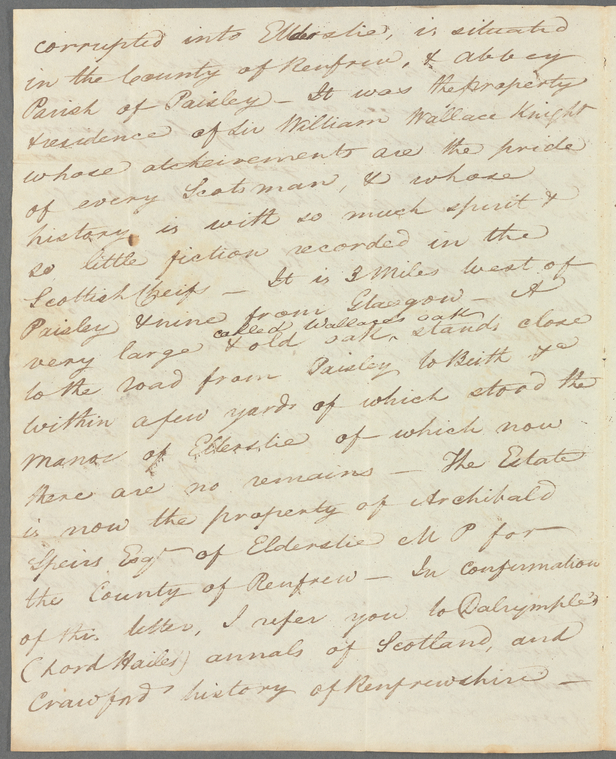 corrupted into Elderslie, is situated
in the County of Renfrew, & abbey
Parish of Paisley – It was the property
& residence of Sir William Wallace Knight
whose atcheivements are the pride
of every Scotsman, & whose
history is with so much spirit &
so little fiction recorded in the
Scottish Cheifs – It is 3 Miles west of
Paisley & nine from Glasgow – A
called Wallaces oak
very large & old oak ‸ stands close
to the road from Paisley to Beith &
within a few yards of which stood the
Manor of Elderslie of which now
there are no remains – The Estate
is now the property of Archibald
Speirs Esqr of Elderslie M P for
the County of Renfrew – In confirmation
of this letter, I refer you to Dalrymple's
(Lord Hailes) annals of Scotland, and
Crawfords history of Renfrewshire –